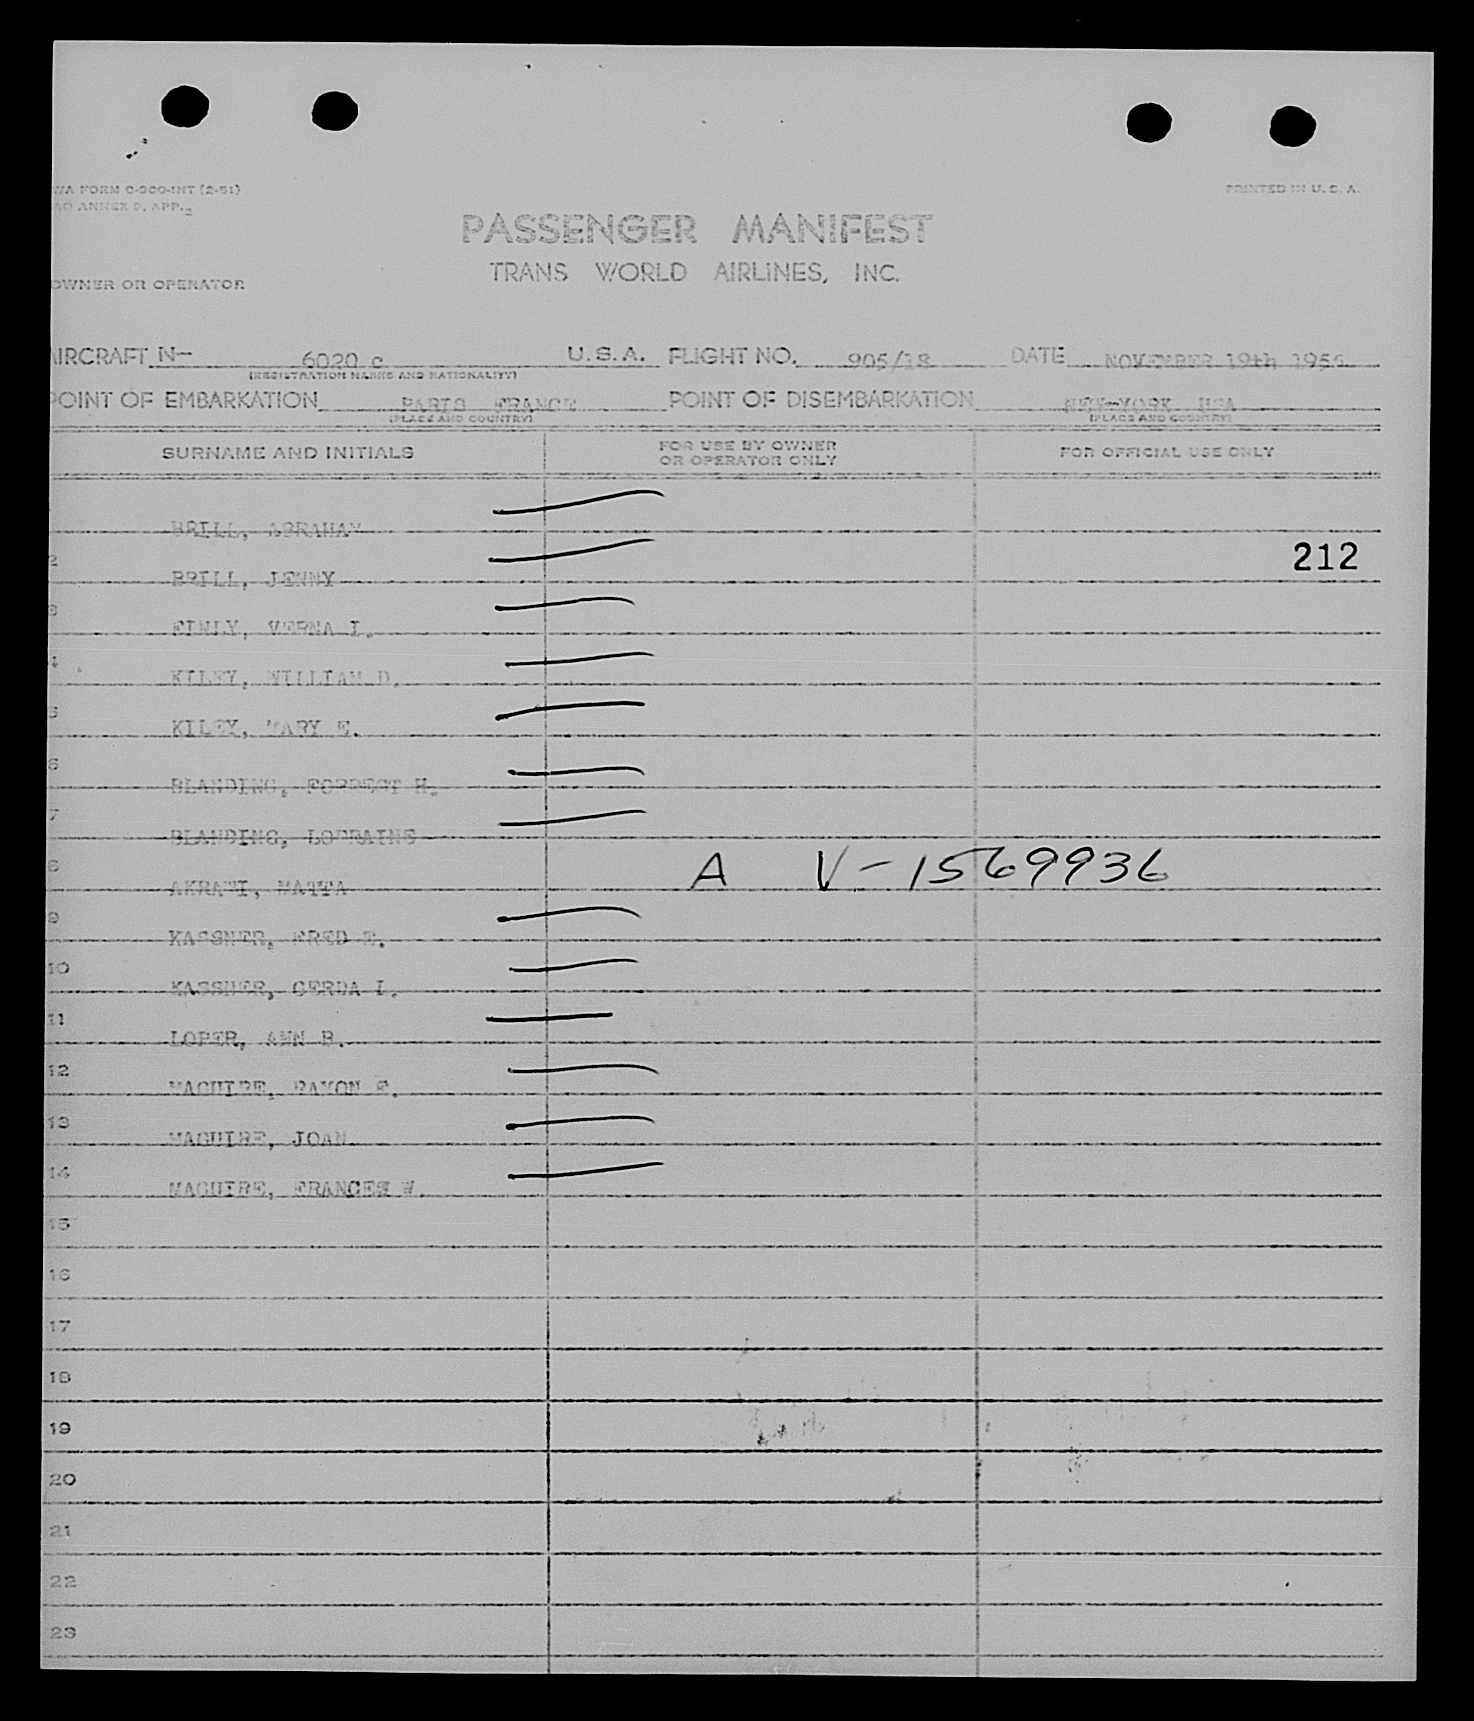 WA FORM C-900-INT (2-51)
PRINTED IN U. S. A.
AO ANNEX 9, APP. 2
PASSENGER MANIFEST
TRANS WORLD AIRLINES, INC.
OWNER OR OPERATOR
AIRCRAFT N- 6020 C U.S.A. FLIGHT NO. 905/18 DATE NOVEMBER 19th
(REGISTRATION MARKS AND NATIONALITY)
POINT OF EMBARKATION PARIS FRANCE POINT OF DISEMBARKATION NEW-YORK USA
(PLACE AND COUNTRY) (PLACE AND COUNTRY)
SURNAME AND INITIALS FOR USE BY OWNER OR OPERATOR ONLY FOR OFFICIAL USE ONLY
BRILL, ABRAHAM
212
2 BRILL, JENNY
3 VERNA I.
4 KILEY, WILLIAM D.
5 KILEY, MARY E.
6 BLANDING, FORREST H.
7 BLANDING, LORRAINE
8 MATTA A V-1569936
9 KASSNER, FRED E.
10 KASSNER, GERDA I.
11 LOPER, ANN B.
12 MAGUIRE, RAMON E.
13 MAGUIRE, JOAN
14 MAGUIRE, FRANCES W.
15
16
17
18
19
20
21
22
23